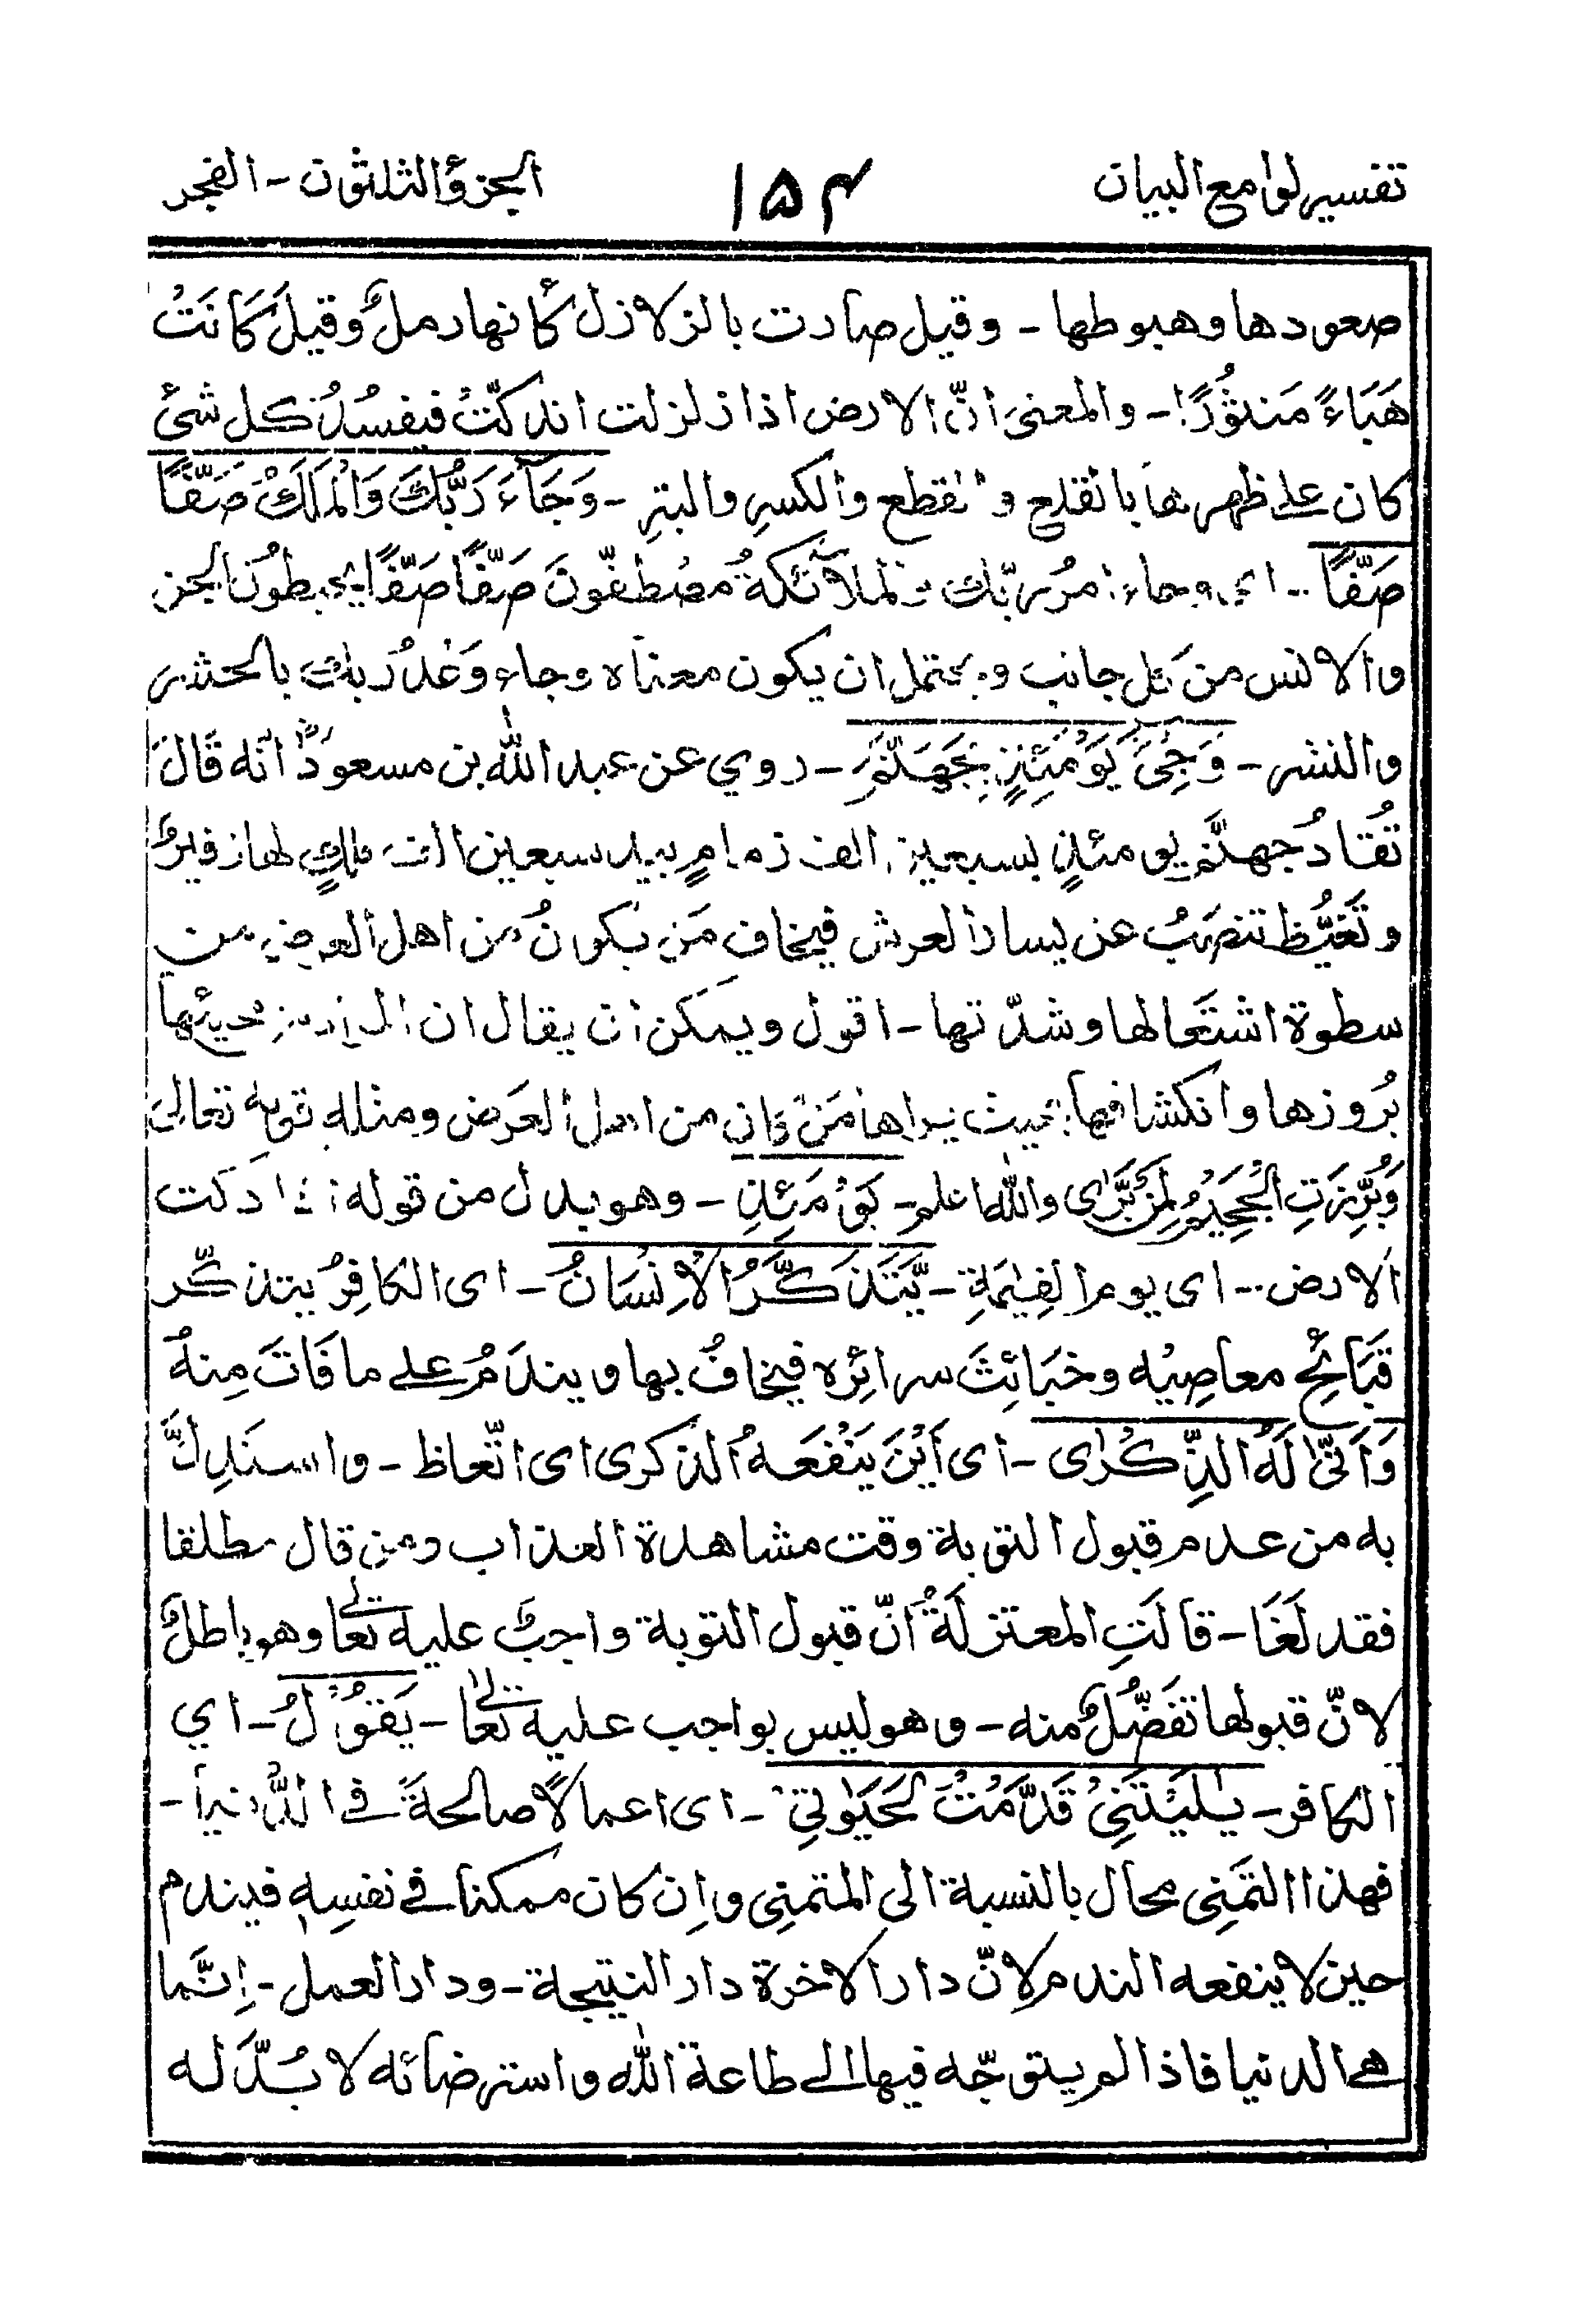 تفسير لوامع البيان ١٥۴ الجزؤالثلثون - الفجر
صعودها وهبوطها - وقيل صارت بالزلازل كأنها رملٌ وقيلَ كَانَتْ
هَبَاءً مَنثُوْرًا - والمعنىَ انّ الارض اذا زلزلت اندكّتْ فيفسُدُ كل شئ
كان على ظهرها بالقلع والقطع والكسرِ والبترِ - وَجَآءَ رَبُّكَ وَالْمَلَكُ صَفًّا
صَفًّا - اى وجاء امرُ ربّك والملآئكةُ مصْطفّونَ صَفًّا صَفًّا يحيطُون الجن
والانس من كل جانب ويحتمل ان يكون معناه وجاء وَعْدُ ربك بالحشر
والنشر - وَجِئَ يَوْمَئِذٍ بِجَهَنَّمَ - روي عن عبد الله بن مسعودؓ انّه قَالَ
تُقَادُ جهنَّم يومئذٍ بسبعين الف زمامٍ بيد سبعين الف ملكٍ لها زفيرٌ
وتَغَيُّظ تنصَبُ عن يسار العرش فيخاف مَن يكونُ من اهل العرض من
سطوة اشتَعالها وشدّتها - اقول ويمكن ان يقال ان المراد من مجيئها
بُروزها وانكشافها بحيث يراها مَن كان من اهل العَرض ومثله قوله تعالىَ
وَبُرِّزَتِ الْجَحِيْمُ لِمَنْ يَّرٰى والله اعلم - يَوْمَئِذٍ - وهو بدل من قوله اذا دكت
الارض - اى يوم القِيٰمَةِ - يَّتَذَكَّرُ الْاِنْسَانُ - اى الكافِرُ يتذكّر
قبَائحِ معاصِيْه وخبَائِثَ سرائرِه فيخافُ بها ويندَمُ على ما فَاتَ مِنهُ
وَاَنّٰى لَهُ الذِّكْرٰى - اى اَيْنَ يَنْفَعَهُ الذكرى اى اتّعاظ - واستَدِلَّ
به من عدم قبول التوبة وقت مشاهدة العذاب ومن قال مطلقا
فقد لَغَا - قالَتِ المعتزلَةُ انّ قبول التوبة واجبٌ عليه تعالى وهو باطلٌ
لانّ قبولها تفَضّلٌ منه - وهو ليس بواجب عليه تعالى - يَقُوْلُ - اي
الكافر - يٰلَيْتَنِىْ قَدَّمْتُ لِحَيَوٰتِىْ - اى اعمالًا صالحةً فى الدُّنيا -
فهذا التمَنِى محال بالنسبة الى المتمنِى واِن كان ممكنا فى نفسِهٖ فيندم
حين لا ينفعه الندم لانّ دار الاخرة دار النتيجة - ودار العمل - اِنَّما
هى الدنيا فاذا لم يتوجّه فيها الى طاعة الله واسترضائه لا بُدّ له